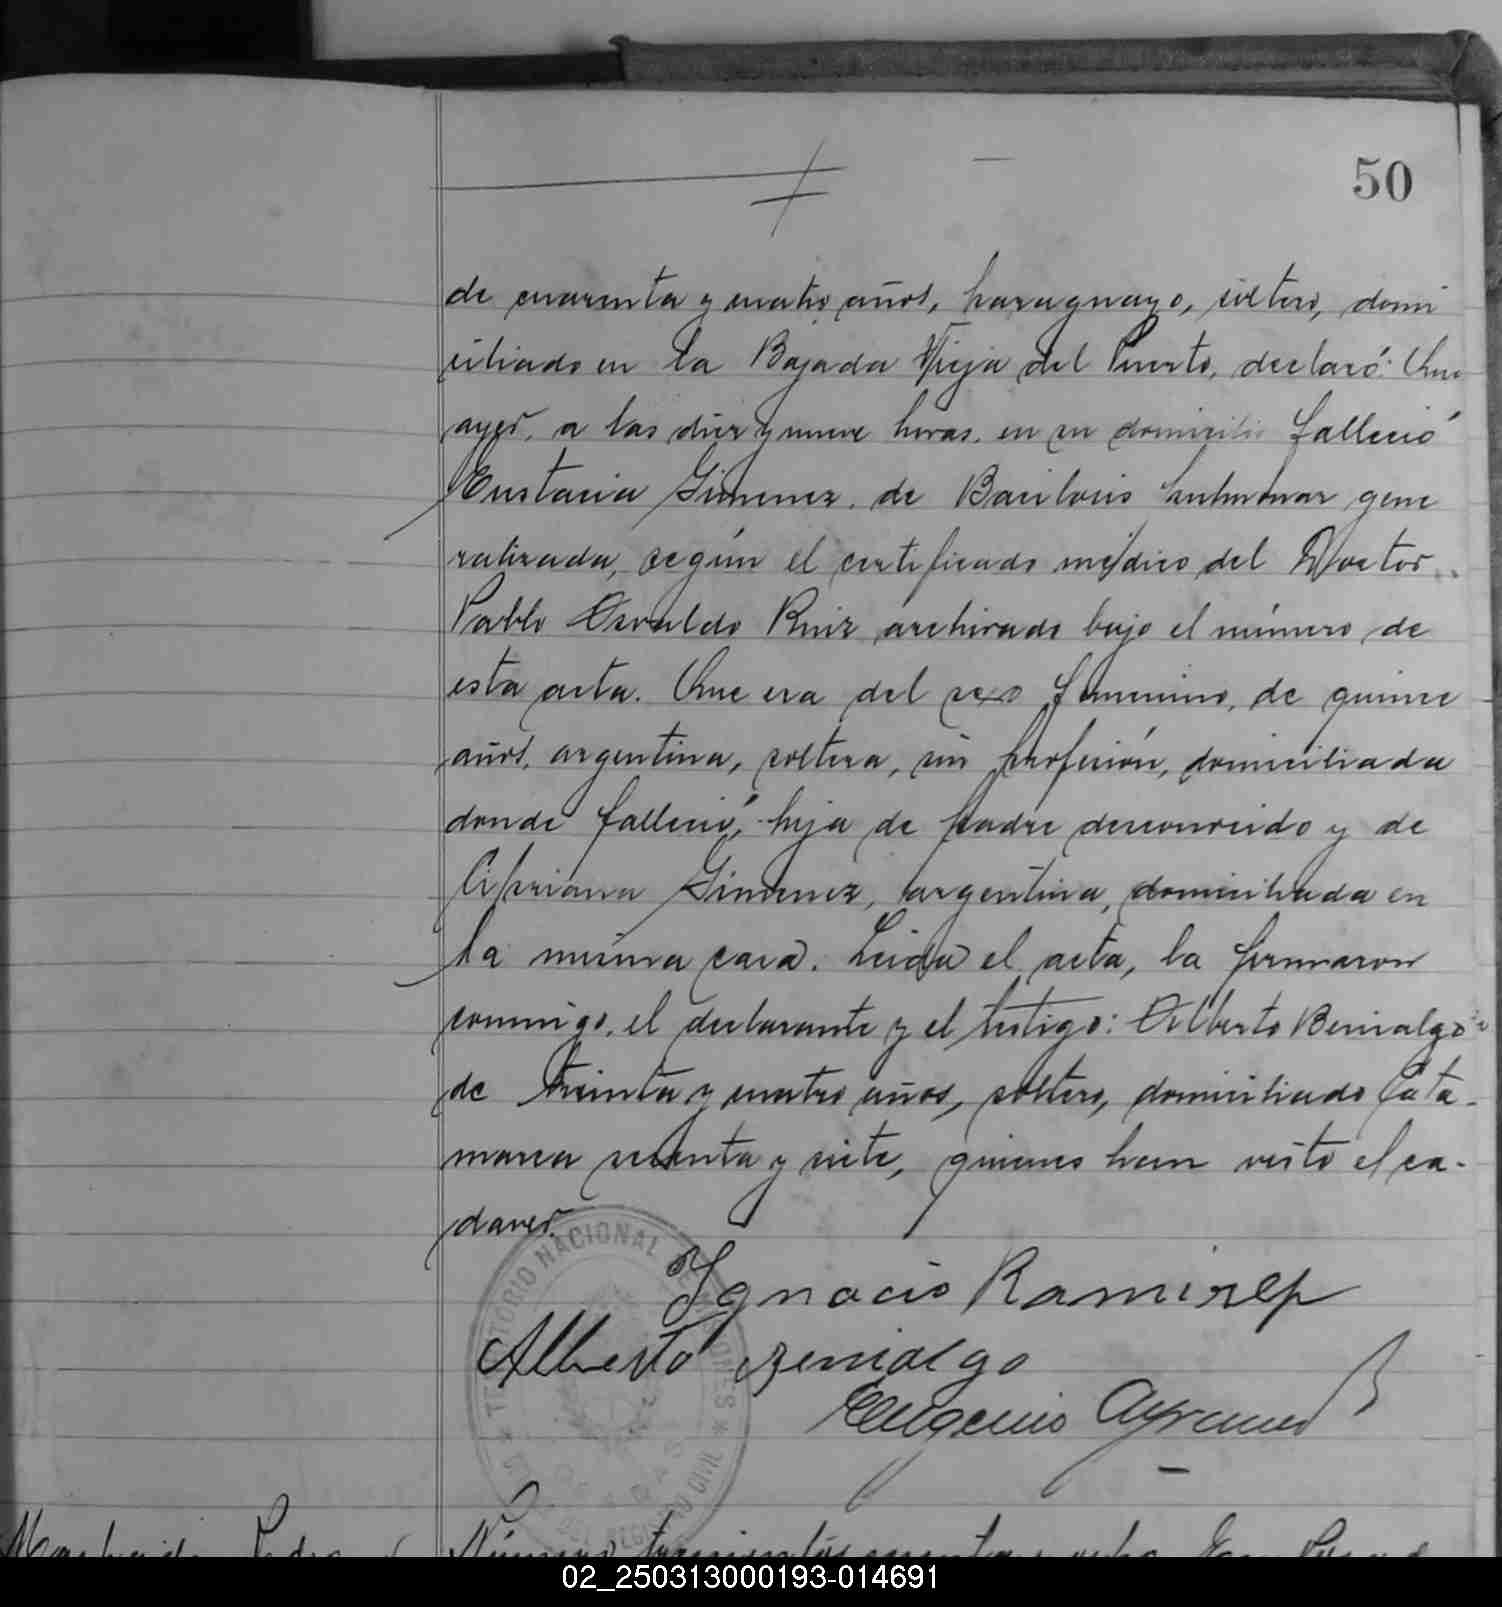 50
de cuarenta y cuatro años, paraguayo, soltero, domi
ciliado en la Bajada Vieja del Puerto, declaró: Que
ayer, a las diez y nueve horas, en su domicilio falleció
Eustacia Gimenez, de Bacilosis pulmonar gene
ralizada, según el certificado médico del Doctor
Pablo Osvaldo Ruiz archivado bajo el número de
esta acta. Que era del sexo femenino, de quince
años, argentina, soltera, sin profesión, domiciliada
donde falleció, hija de padre desconocido y de
Cipriana Gimenez, argentina, domiciliada en
la misma casa. Leida el acta, la firmaron
conmigo, el declarante y el testigo: Alberto Benialgo
de treinta y cuatro años, soltero, domiciliado Cata-
marca sesenta y siete, quienes han visto el ca-
daver.
TERRITORIO NACIONAL DE MISIONES
REGISTRO CIVIL
POSADAS
Ignacio Ramirez
Alberto Benialgo
Eugenio
Pedro
Número trescientos cuenta y ocho En Posad
02_250313000193-014691